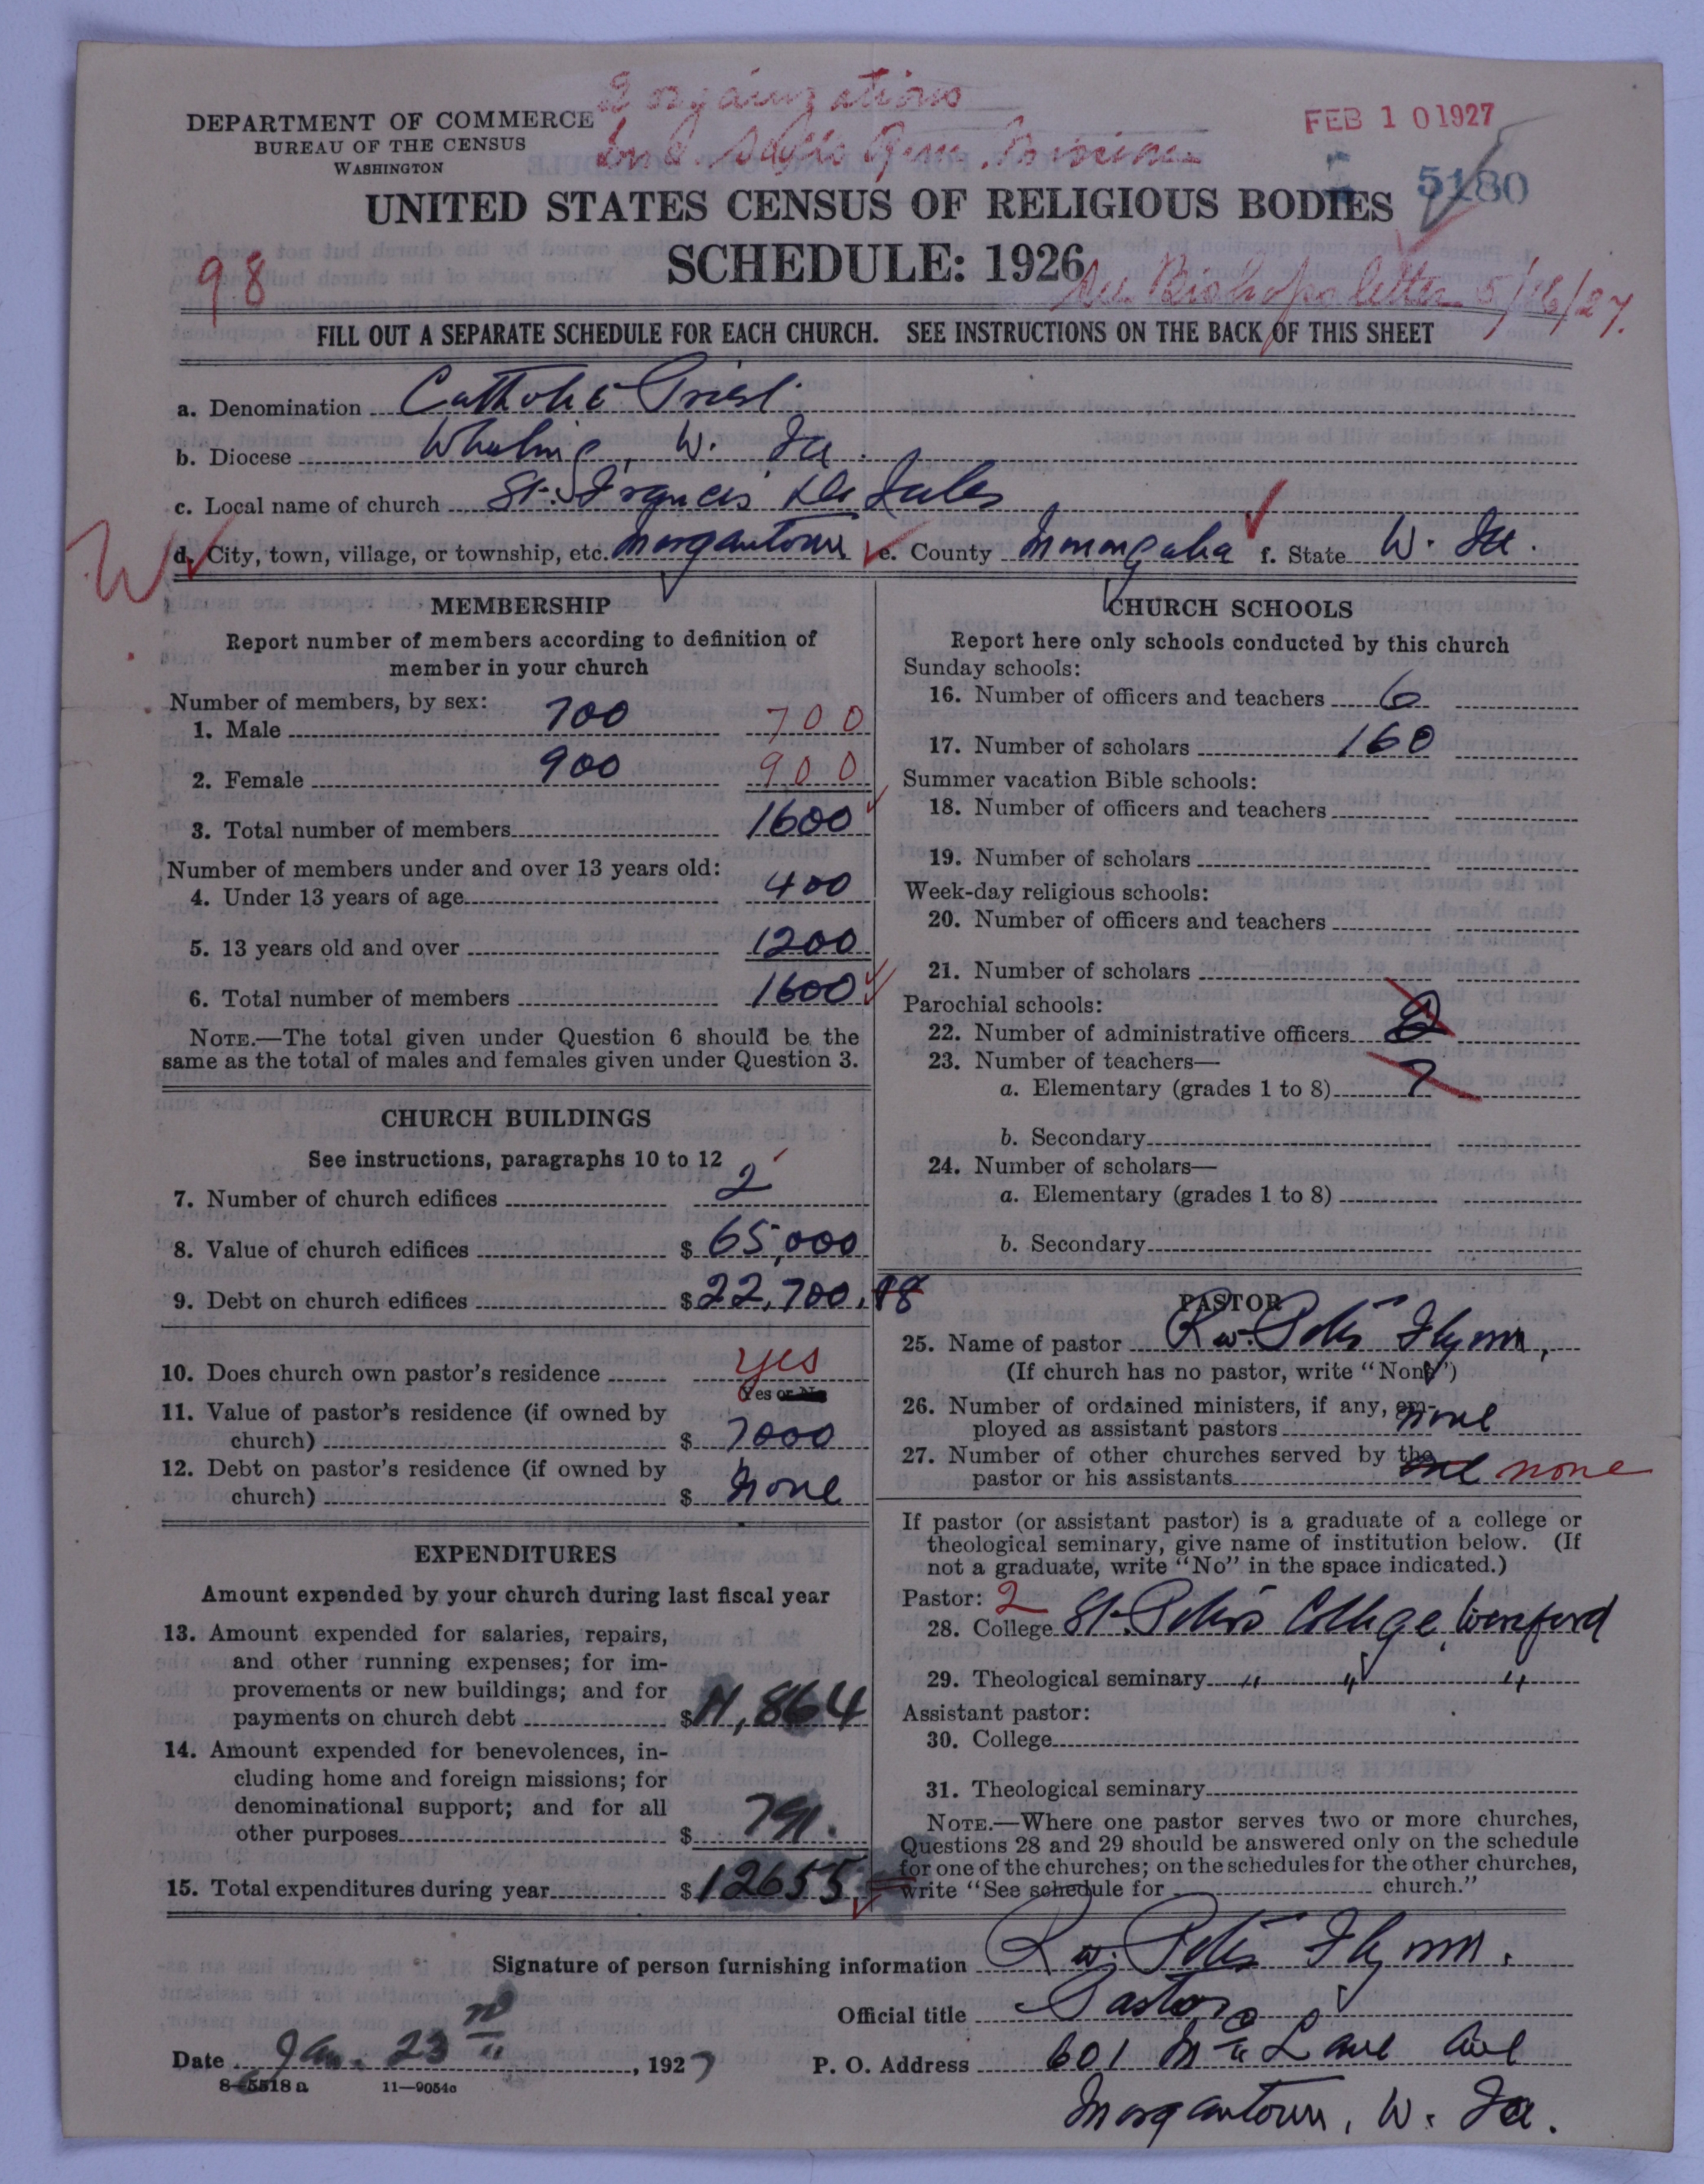 2 organizations
DEPARTMENT OF COMMERCE
BUREAU OF THE CENSUS
WASHINGTON
FEB 10 1927
5180
UNITED STATES CENSUS OF RELIGIOUS BODIES
SCHEDULE: 1926
98
See Bishops letter 5/16/27.
FILL OUT A SEPARATE SCHEDULE FOR EACH CHURCH. SEE INSTRUCTIONS ON THE BACK OF THIS SHEET
a. Denomination Catholic Priest
b. Diocese Wheeling, W. Va.
c. Local name of church St. Francis De Sales
d. City, town, village, or township, etc. Morgantown e. County Monongalia f. State W. Va.
MEMBERSHIP
Report number of members according to definition of
member in your church
Number of members, by sex:
1. Male 700 700
2. Female 900 900
3. Total number of members 1600
Number of members under and over 13 years old:
4. Under 13 years of age 400
5. 13 years old and over 1200
6. Total number of members 1600
NOTE.—The total given under Question 6 should be the
same as the total of males and females given under Question 3.
CHURCH BUILDINGS
See instructions, paragraphs 10 to 12
7. Number of church edifices 2
8. Value of church edifices $ 65,000
9. Debt on church edifices $ 22,700.98
10. Does church own pastor's residence yes
Yes or No
11. Value of pastor's residence (if owned by
church) $ 7000
12. Debt on pastor's residence (if owned by
church) $ none
EXPENDITURES
Amount expended by your church during last fiscal year
13. Amount expended for salaries, repairs,
and other running expenses; for im-
provements or new buildings; and for
payments on church debt $ 11,864
14. Amount expended for benevolences, in-
cluding home and foreign missions; for
denominational support; and for all
other purposes $ 791.
15. Total expenditures during year $ 12655
CHURCH SCHOOLS
Report here only schools conducted by this church
Sunday schools:
16. Number of officers and teachers 6
17. Number of scholars 160
Summer vacation Bible schools:
18. Number of officers and teachers
19. Number of scholars
Week-day religious schools:
20. Number of officers and teachers
21. Number of scholars
Parochial schools:
22. Number of administrative officers
23. Number of teachers—
a. Elementary (grades 1 to 8) 7
b. Secondary
24. Number of scholars—
a. Elementary (grades 1 to 8)
b. Secondary
PASTOR
25. Name of pastor Rev. Peter Flynn,
(If church has no pastor, write "None")
26. Number of ordained ministers, if any, em-
ployed as assistant pastors none
27. Number of other churches served by the
pastor or his assistants one none
If pastor (or assistant pastor) is a graduate of a college or
theological seminary, give name of institution below. (If
not a graduate, write "No" in the space indicated.)
Pastor: 2
28. College St. Peter's College, Wexford
29. Theological seminary " " "
Assistant pastor:
30. College
31. Theological seminary
NOTE.—Where one pastor serves two or more churches,
Questions 28 and 29 should be answered only on the schedule
for one of the churches; on the schedules for the other churches,
write "See schedule for church."
Signature of person furnishing information Rev. Peter Flynn.
Official title Pastor
Date Jan. 23, 1927 P. O. Address 601 McLane Ave
8-5518 a 11-9054a
Morgantown, W. Va.